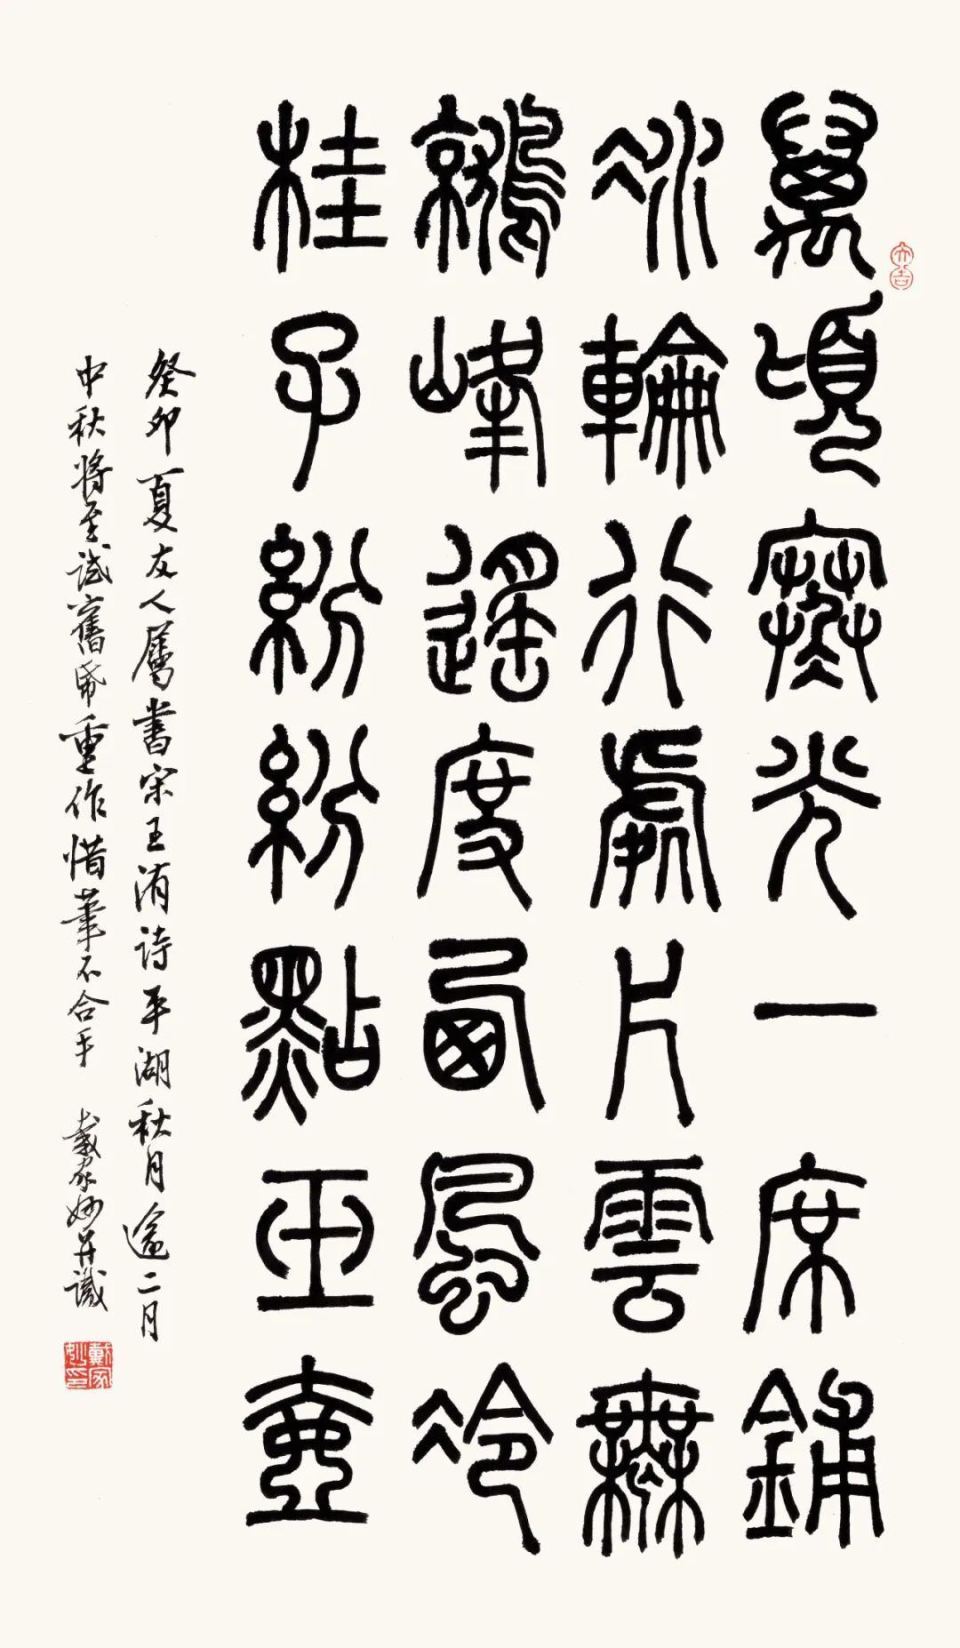 大吉
萬頃寒光一席鋪
冰輪行處片雲無
鷲峰遥度西風冷
桂子紛紛點玉壺
癸卯夏友人屬書宋王洧詩平湖秋月逾二月
中秋將至試舊帋重作惜筆不合手 戴家妙并識
戴家妙印